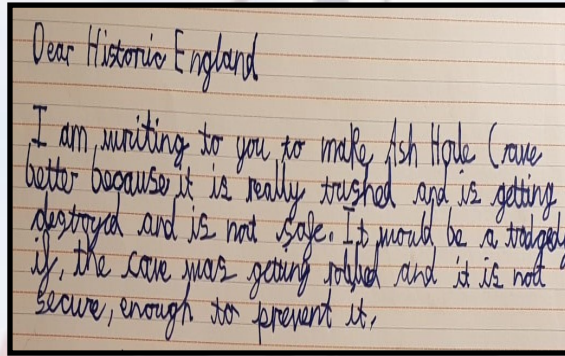 Dear Historic England
I am, writing to you to make Ash Hole Crave
better because it is really trashed and is getting
destroyed and is not safe. It would be a tradgedy
if, the cave was getting robbed and it is not
secure, enough to prevent it.